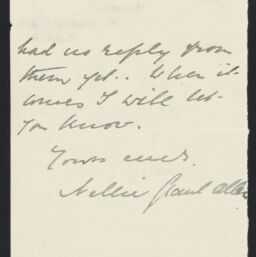 had no reply from
them yet.. When it
comes I will let
you know.
Yours
Nellie